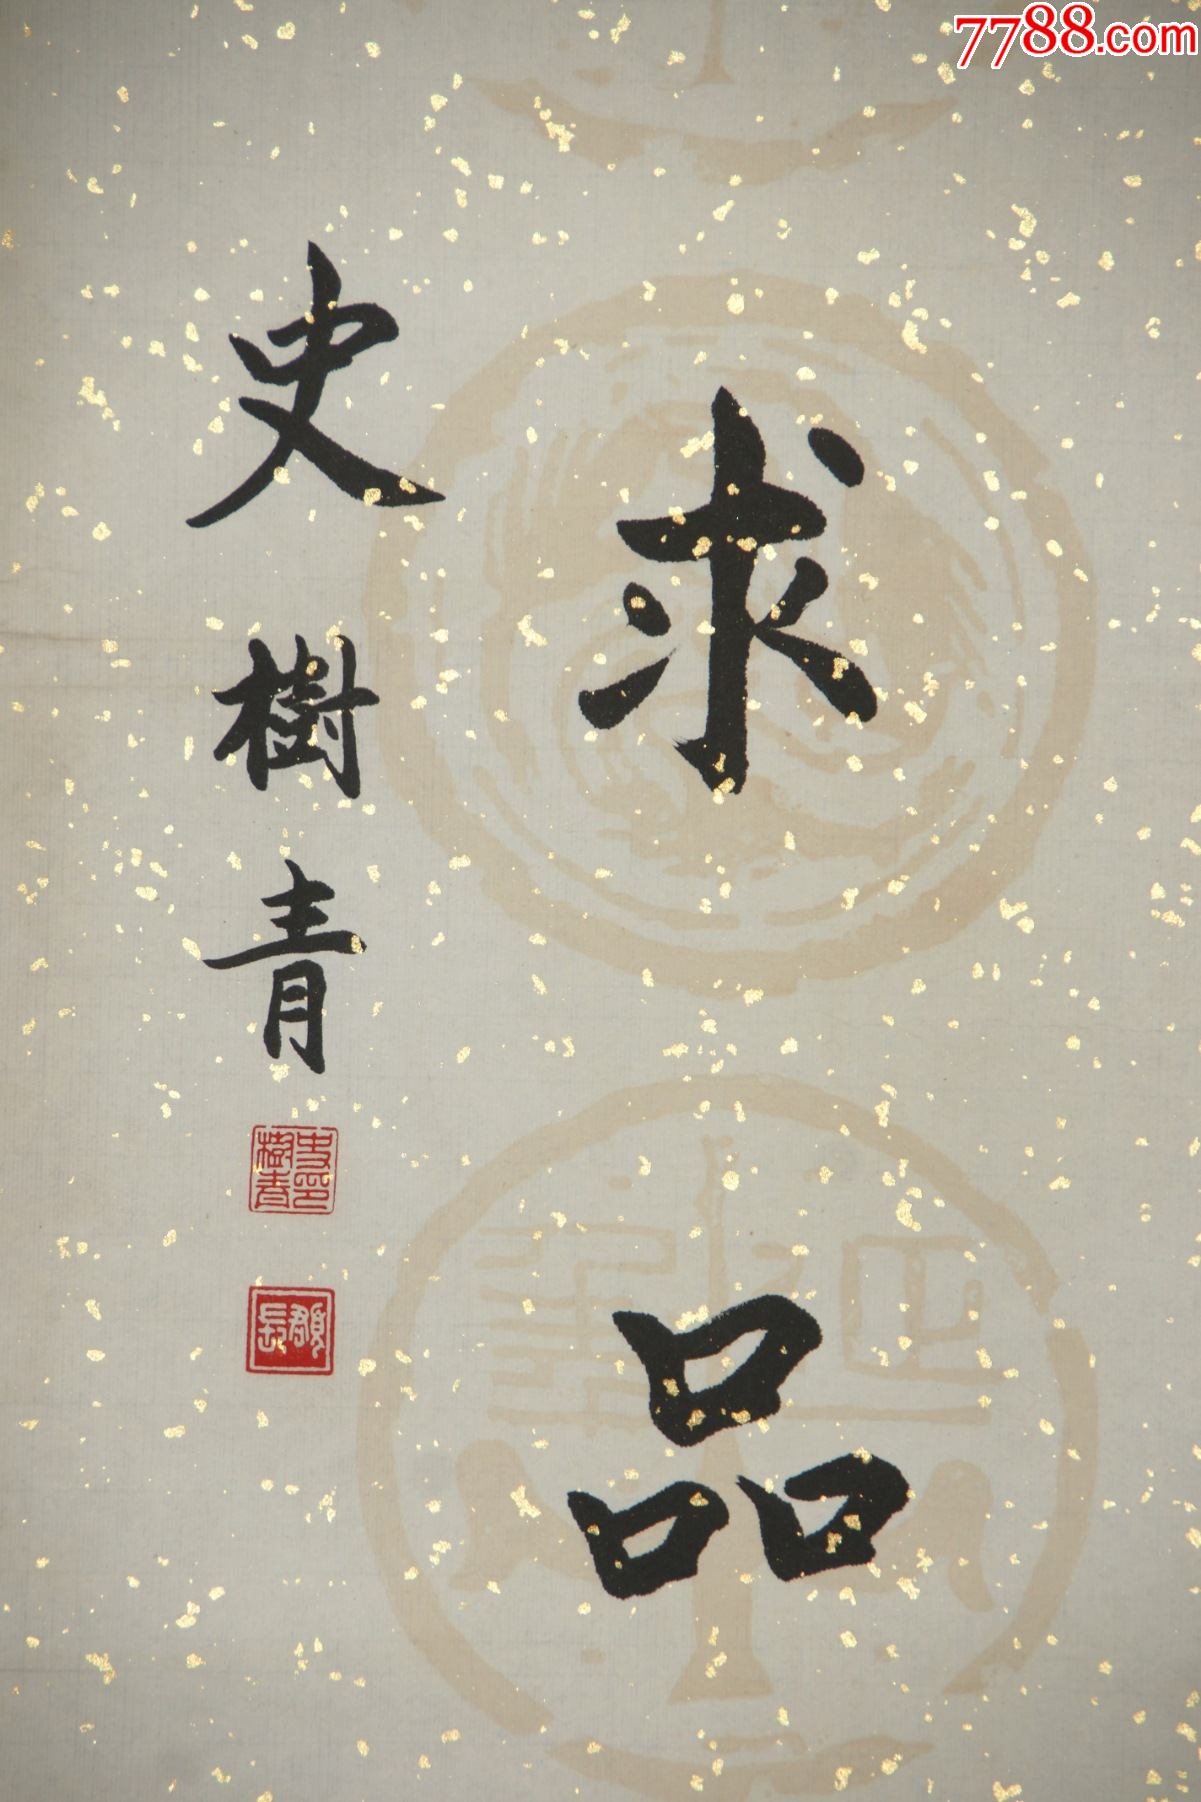 7788.com
求品
史樹青
史樹青印